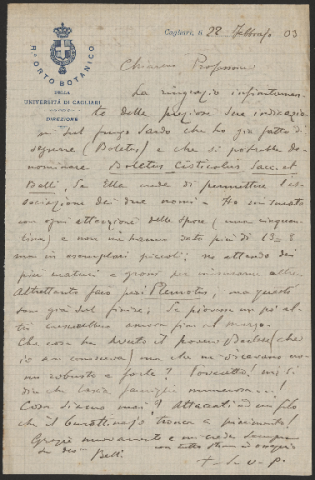 R.º ORTO BOTANICO
DELLA
UNIVERSITÀ DI CAGLIARI
DIREZIONE
Cagliari, li 22 Febbraio 03
Chiarissimo Professore
La ringrazio infinitamen-
te delle preziose Sue indicazio-
ni sul fungo Sardo che ho già fatto di-
segnare (Boletus) e che si potrebbe de-
nominare Boletus Cisticolus Sacc. et
Belli, se Ella crede di permettere l'as-
sociazione dei due nomi. Ho misurato
con ogni attenzione delle spore (una cinquan-
tina) e non mi hanno dato più di 13 8
ma in esemplari piccoli; ne attendo dei
più maturi e grossi per misurarne altre
Altrettanto farò pei Pleurotus, ma questi
sono già sul finire. Se piovesse un po' al-
tri ancora fino al marzo.
Che cosa ha avuto il povero (che
io non conosceva) ma che mi dicevano uo-
mo robusto e forte? Poveretto! mi si
dice che lascia famiglia numerosa..!
Cosa siamo mai? Attaccati ad un filo
che il burattinajo tronca a piacimento!
Grazie nuovamente e mi creda sempre
Suo dev.
Belli